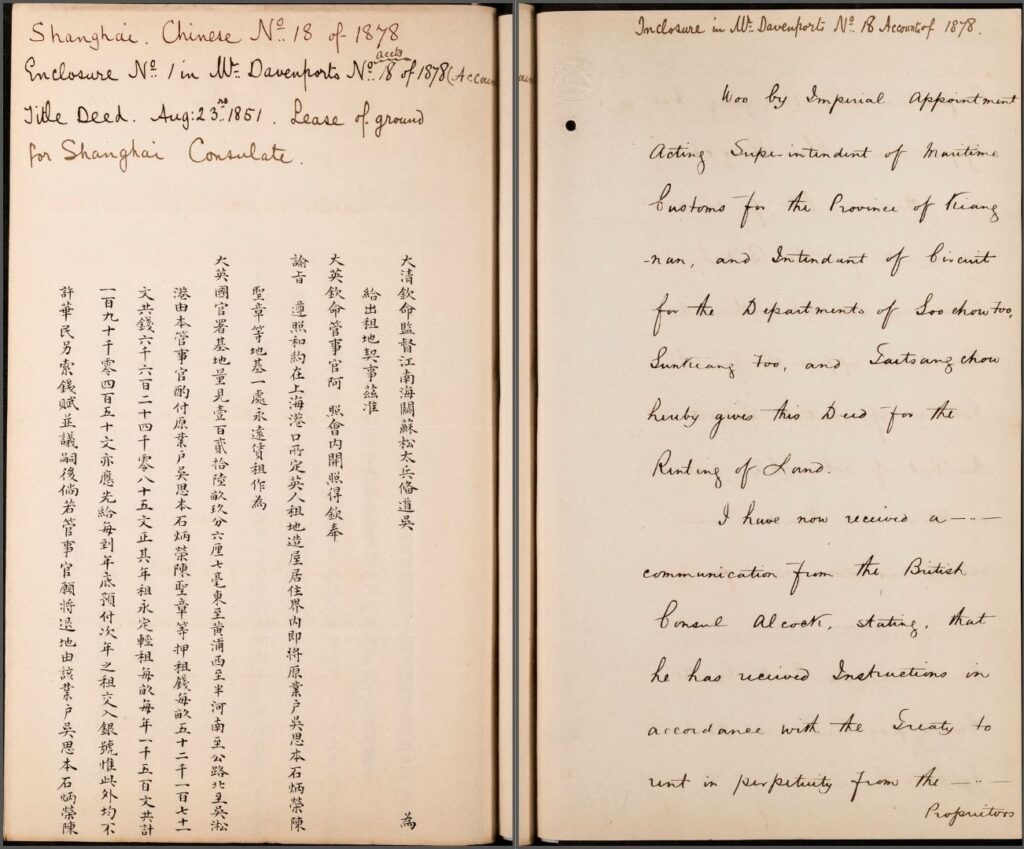 Shanghai. Chinese No. 18 of 1878
Enclosure No. 1 in Mr. Davenport's No. accts 18 of 1878 (Accoun
Title Deed. Aug: 23rd 1851. Lease of ground
for Shanghai Consulate.
大清欽命監督江南海關蘇松太兵備道吳 為
給出租地契事茲准
大英欽命管事官阿 照會內開照得欽奉
諭旨 遵照和約在上海港口所定英人租地造屋居住界內即將原業户吳思本石炳榮陳
聖章等地基一處永遠賃租作為
大英國官署基地量見壹百貳拾陸畝玖分六厘七毫東至黃浦西至半河南至公路北至吳淞
港由本管事官酌付原業户吳思本石炳榮陳聖章等押租錢每畝五十二千一百七十一
文共錢六千六百二十四千零八十五文正其年租永定輕租每畝每年一千五百文共計
一百九十千零四百五十文亦應先給每到年底預付次年之租交入銀號惟此外均不
許華民另索錢賦並議嗣後倘若管事官願將退地由該業户吳思本石炳榮陳
Inclosure in Mr. Davenport's No. 18 Accounts of 1878.
Woo by Imperial Appointment
Acting Superintendent of Maritime
Customs for the Province of Kiang
-nan, and Intendant of Circuit
for the Departments of Soochow foo,
Sunkiang foo, and Taitsang chow
hereby gives this Deed for the
Renting of Land.
I have now received a
communication from the British
Consul Alcock, stating, that
he has received Instructions in
accordance with the Treaty to
rent in perpetuity from the
Proprietors